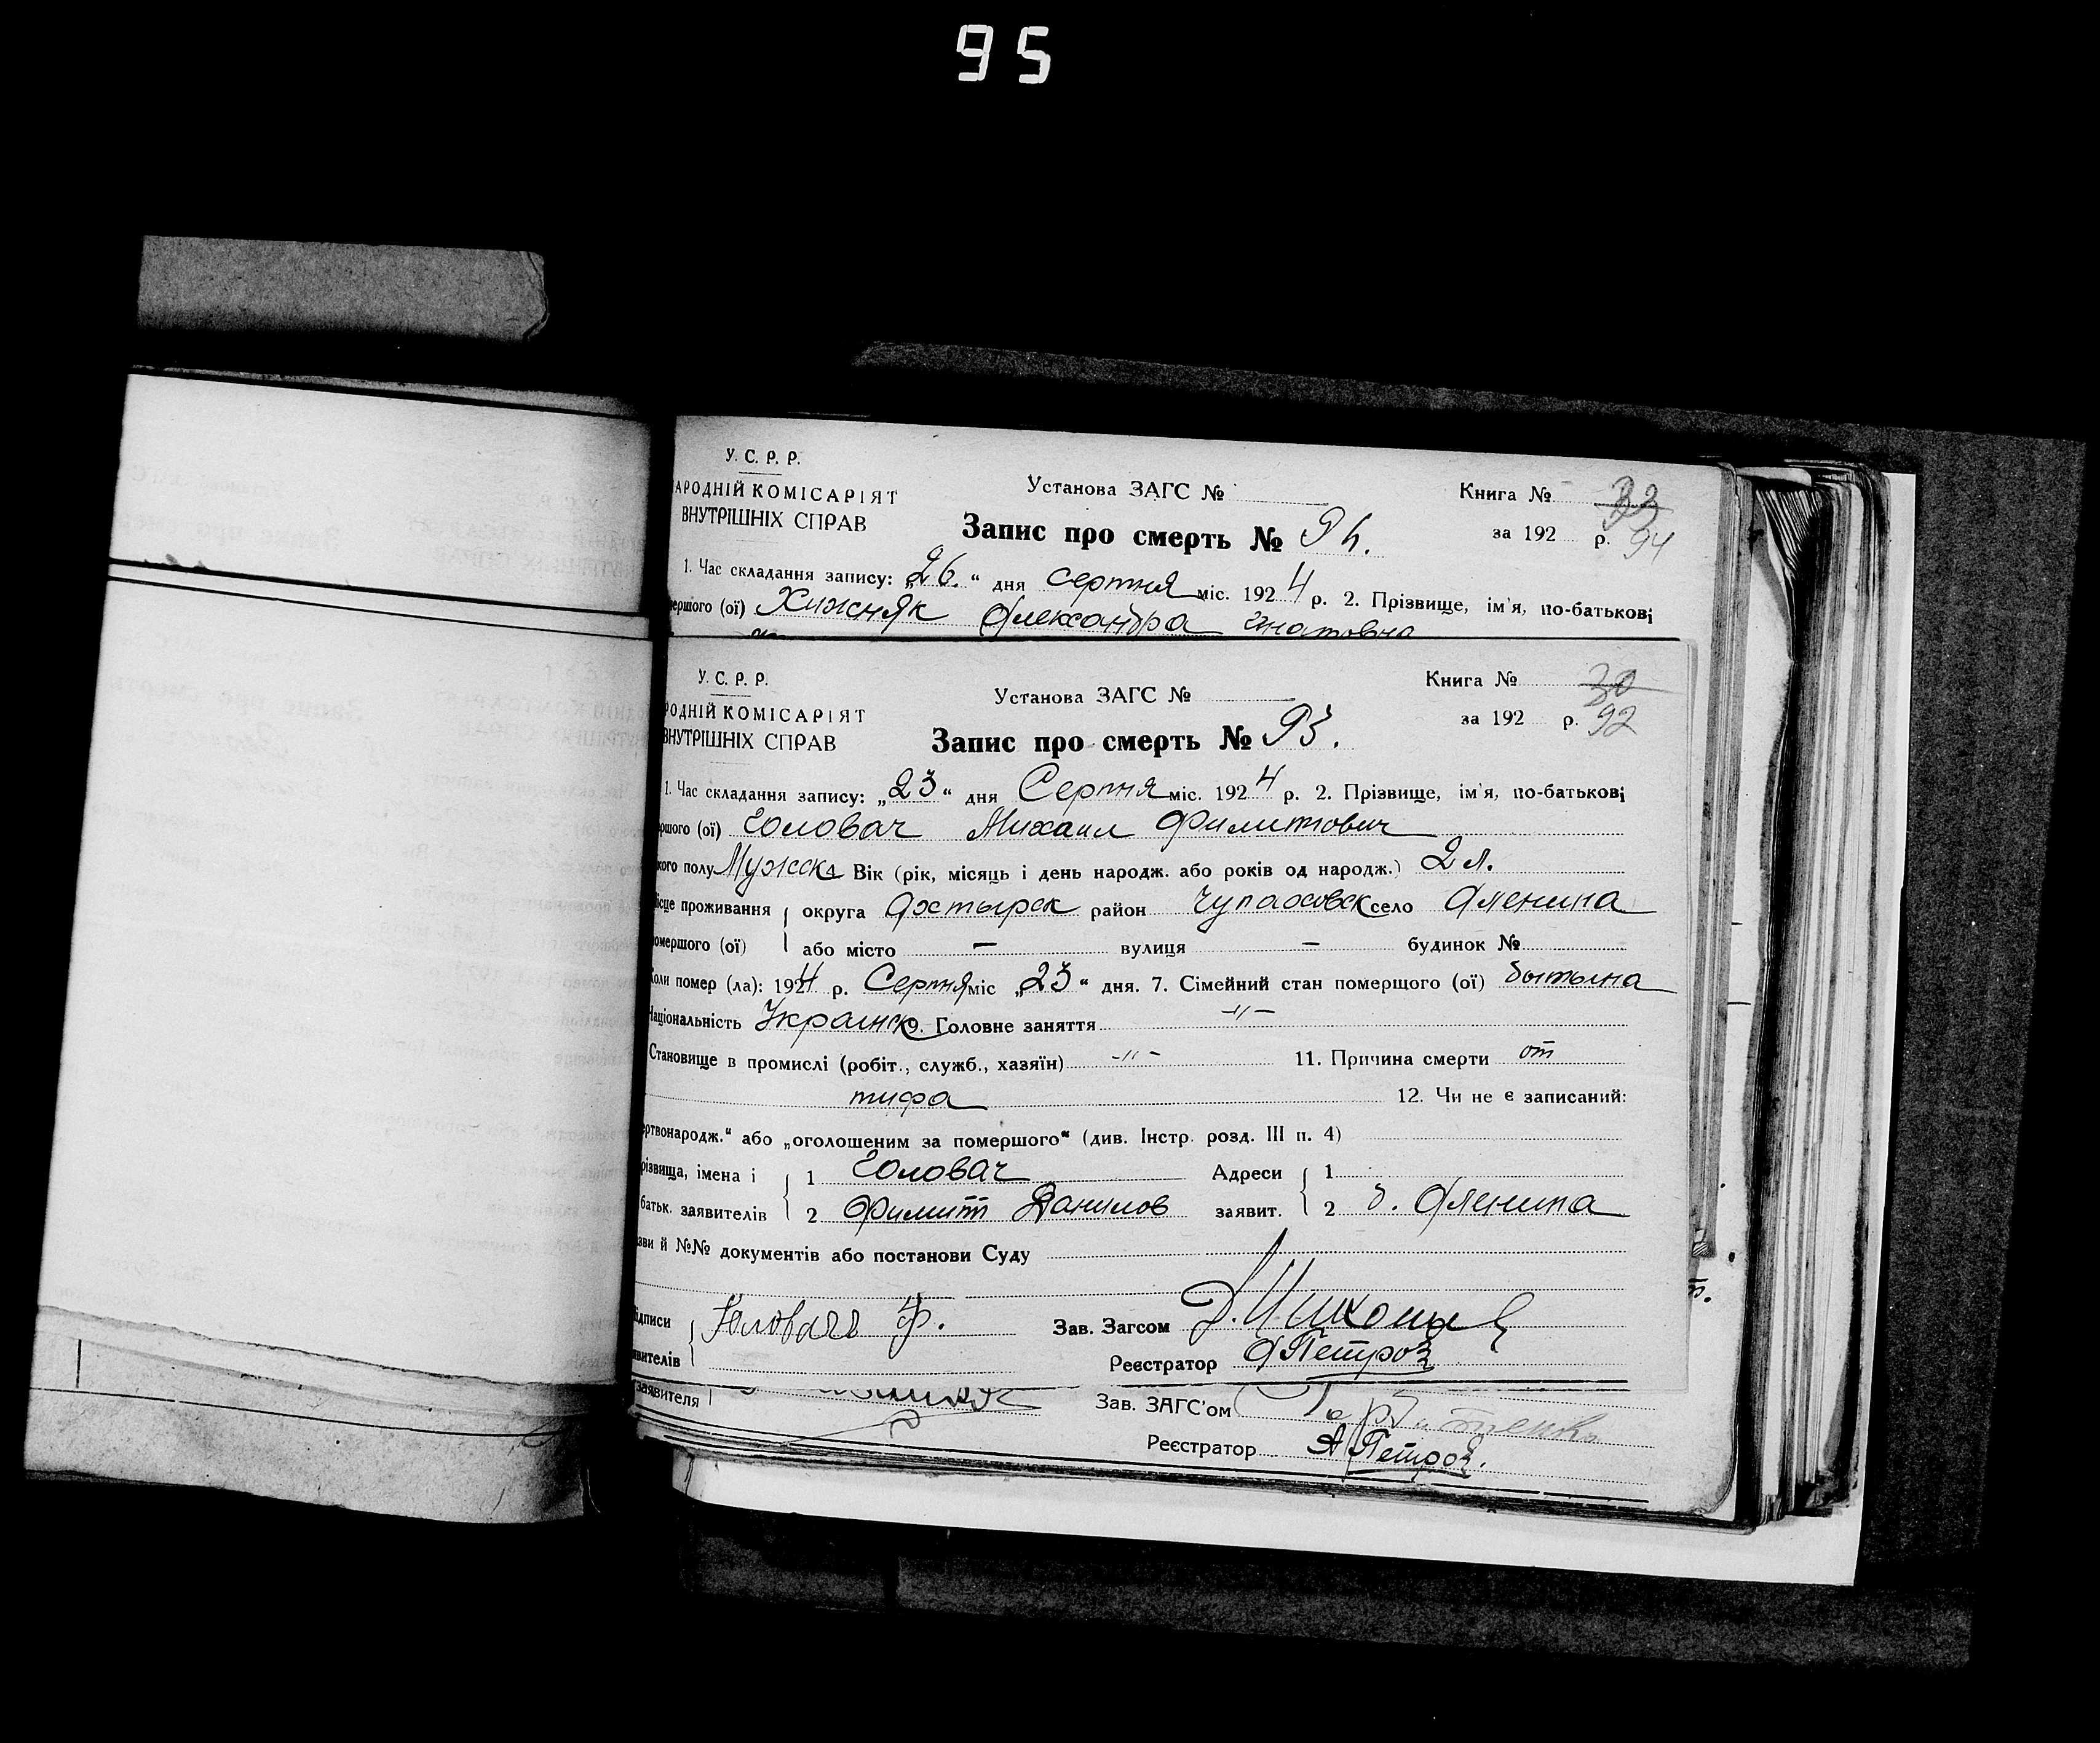 95
У. С. Р. Р.
АРОДНІЙ КОМІСАРІЯТ
ВНУТРІШНІХ СПРАВ
Установа ЗАГС №
Книга № 33
Запис про смерть № 94.
за 192 р. 94
1. Час складання запису: „26.“ дня серпня міс. 1924 р. 2. Прізвище, ім'я, по-батькові
ершого (ої) Хижняк Александра Игнатовна
У. С. Р. Р.
РОДНІЙ КОМІСАРІЯТ
ВНУТРІШНІХ СПРАВ
Установа ЗАГС №
Книга № 30
Запис про смерть № 93.
за 192 р. 92
1. Час складання запису: „23“ дня Серпня міс. 1924 р. 2. Прізвище, ім'я, по-батькові
ршого (ої) Головач Михаил Филиппович
кого полу Мужска Вік (рік, місяць і день народж. або років од народж.) 2 л.
ісце проживання округа Охтырск район Чупаховск село Оленина
омершого (ої) або місто — вулиця — будинок №
Коли помер (ла): 1924 р. Серпня міс „23“ дня. 7. Сімейний стан померщого (ої)
Національність Украинск 9. Головне заняття -"-
Становище в промислі (робіт., служб., хазяїн) -"- 11. Причина смерти от
тифа 12. Чи не є записаний:
ертвонародж.“ або „оголошеним за помершого“ (див. Інстр. розд. III п. 4)
різвища, імена і 1 Головач Адреси 1
батьк. заявителів 2 Филипп Данилов заявит. 2 Оленина
зви й №№ документів або постанови Суду
ідписи Головачь Ф. Зав. Загсом
явителів Реєстратор А Петров
заявителя Зав. ЗАГС'ом
Реєстратор А Петров.